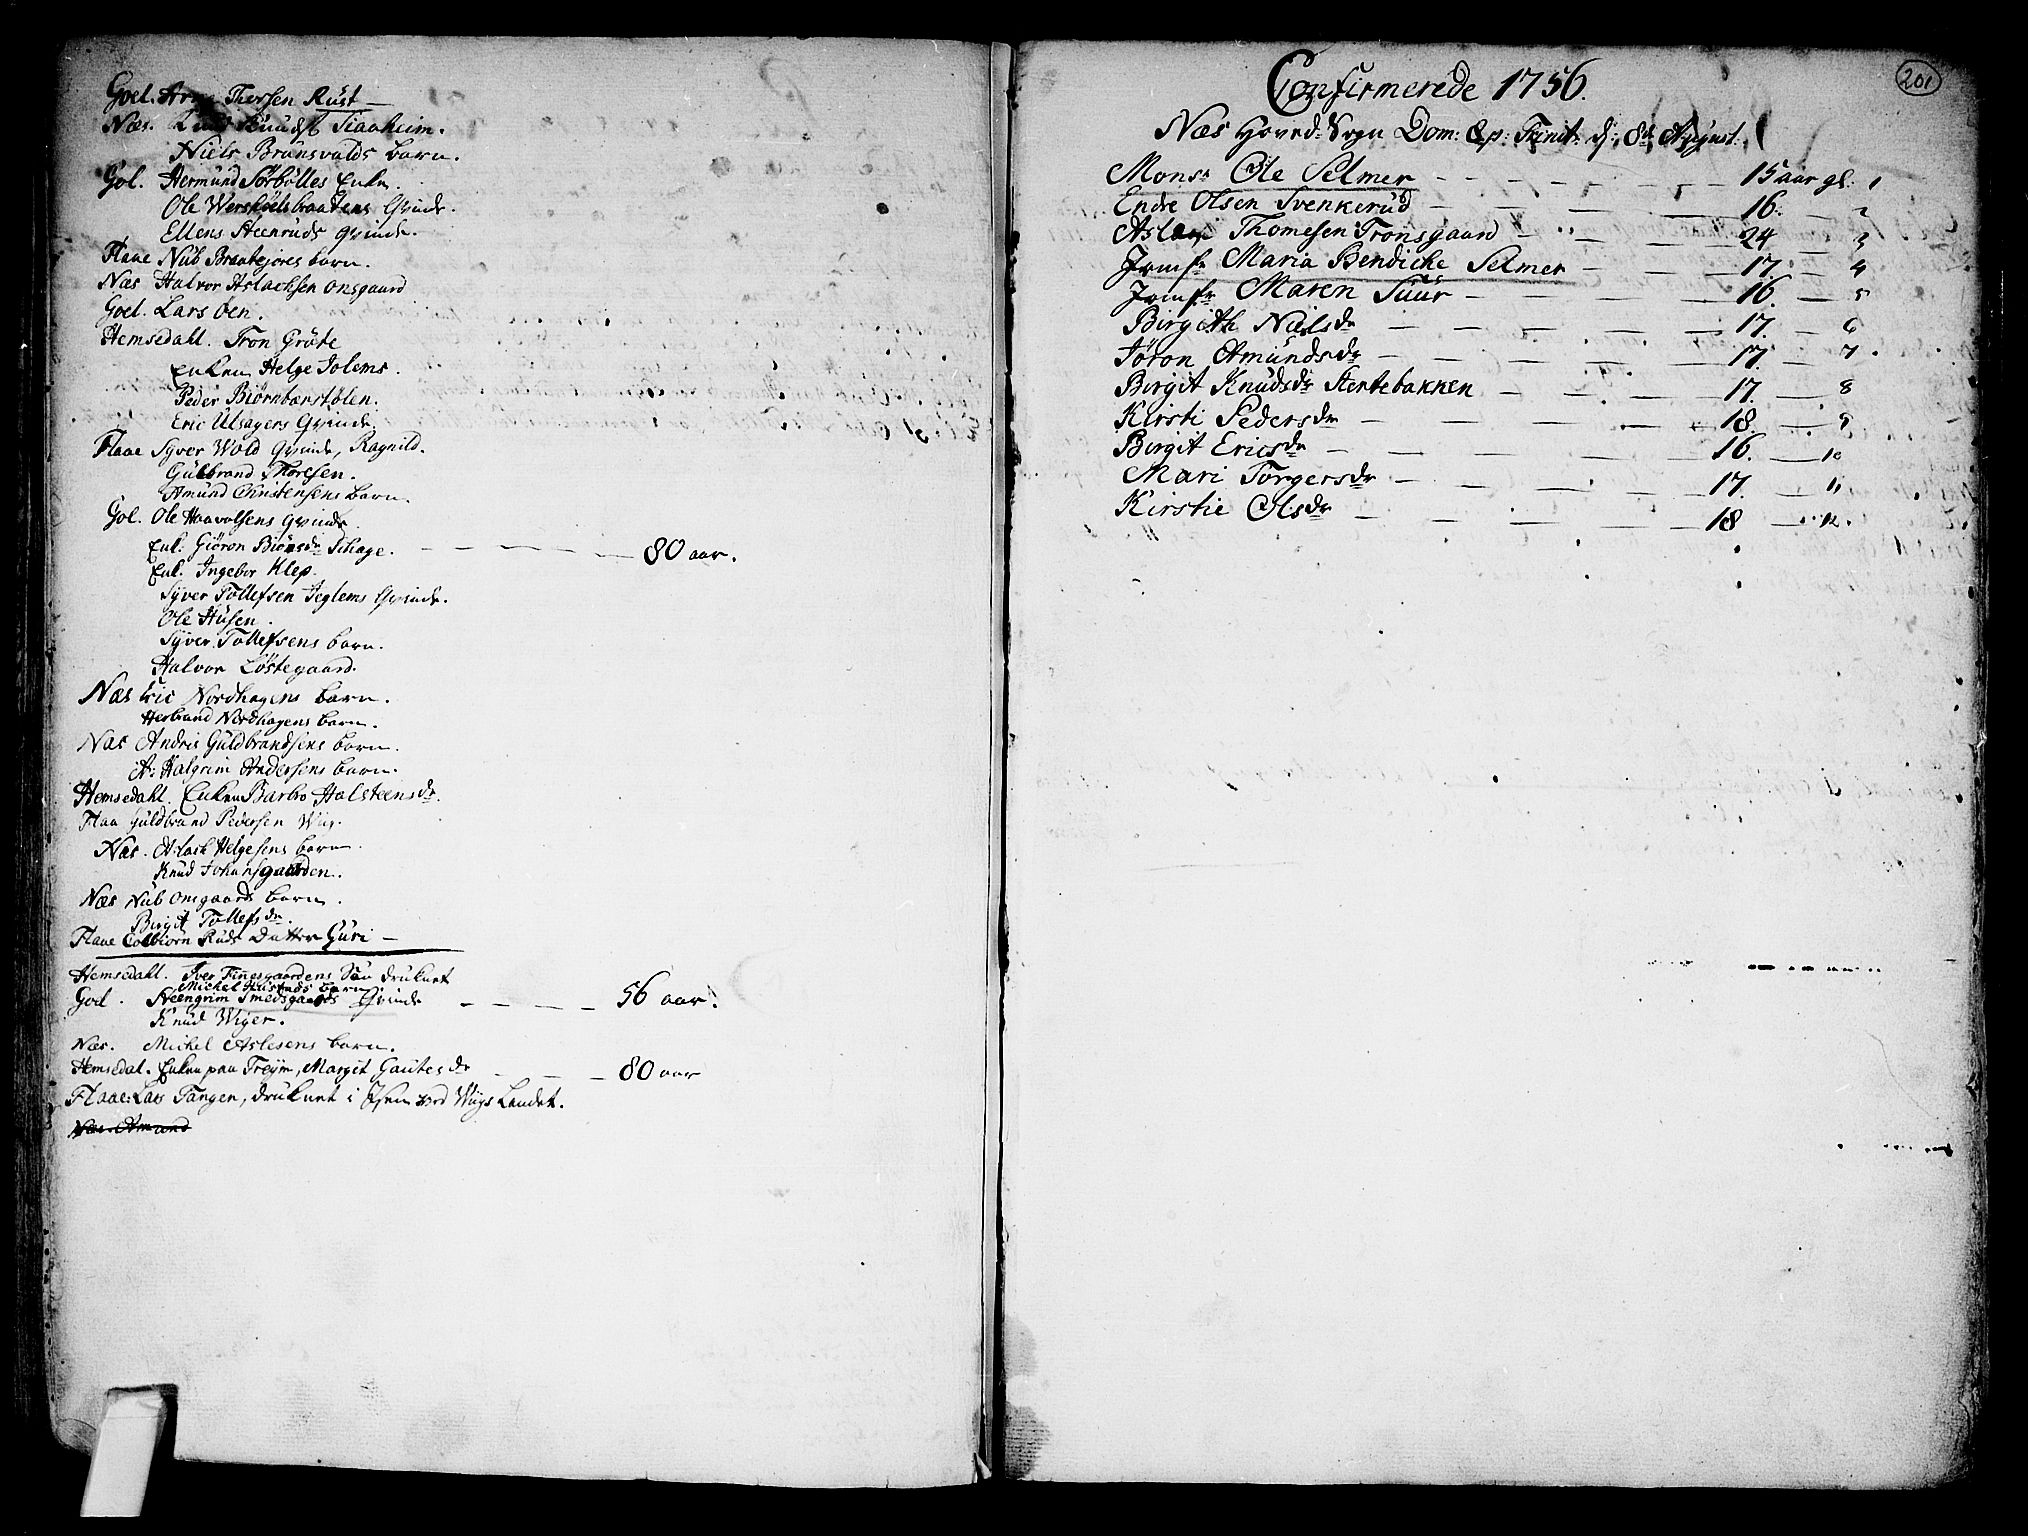 Goel. Arne Thorsen Rust —
Næs. Knud Knuds. Tiaaheim.
Niels Brunsvolds barn.
Gol. Hermund Sørbølles Enke.
Ole Werskoelsbraatens Qvinde.
Ellens Steenruds Qvinde.
Flaae Nub Braatejores barn.
Næs Halvor Aslachsen Onsgaard
Goel. Lars Øen.
Hemsedahl. Tron Grøte
Enken Helge Tolems.
Peder Biørnbærstølen.
Eric Ulsagers Qvinde.
Flaae Syver Wold Qvinde, Ragnild.
Guldbrand Thoresen.
Amund Christensens barn.
Gol. Ole Haavolsens Qvinde.
Enk. Giøron Biønsdr Schage. — — — — 80 aar.
Enk. Ingebor Klep.
Syver Tollefsen Jeglems Qvinde.
Ole Husen.
Syver Tollefsens barn.
Halvor Løstegaard.
Næs Eric Nordhagens barn.
Herbrand Nordhagens barn.
Næs Andris Guldbrandsens barn.
A: Halgrim Andersens barn.
Hemsedahl. Enken Barbro Halsteensdr.
Flaa Guldbrand Pedersen Wiig.
Næs. Aslach Helgesens barn.
Knud Johansgaarden.
Næs Nub Onsgaards barn.
Birgit Tollefsdr.
Flaae Colbiørn Ruds Datter Guri —
Hemsedahl. Iver Finnesgaardens Søn druknet
Michel Hustads barn.
Goel. Steengrim Smedsgaards Qvinde — — — — 56 aar.
Knud Wiger.
Næs. Michel Aslesens barn.
Hemsedal. Enken paa Trøym, Margit Gautesdr — — — 80 aar
Flaae: Lars Tangen, druknet i Elven ved Wiigs Landet.
Næs. Amund
201
Confirmerede 1756.
Næs Hoved-Sogn Dom: 8 p: Trinit: d: 8de August.
Monsr Ole Selmer — — — — 15 aar gl. 1
Endre Olsen Svenkerud — — — 16. 2
Aslach Thomesen Tronsgaard — — — 24 3
Jomfr Maria Bendicke Selmer — — — 17. 4
Jomfr Maren Tuur — — — 16. — 5
Birgith Nielsdr — — — 17. — 6
Jøron Amundsdr — — — 17. — 7
Birgit Knudsdr Stentebakken — — — 17. — 8
Kirsti Pedersdr — — — 18. — 9
Birgit Ericsdr — — — 16. — 10
Mari Torgersdr — — — 17. — 11
Kirstie Olsdr — — — 18 — 12.